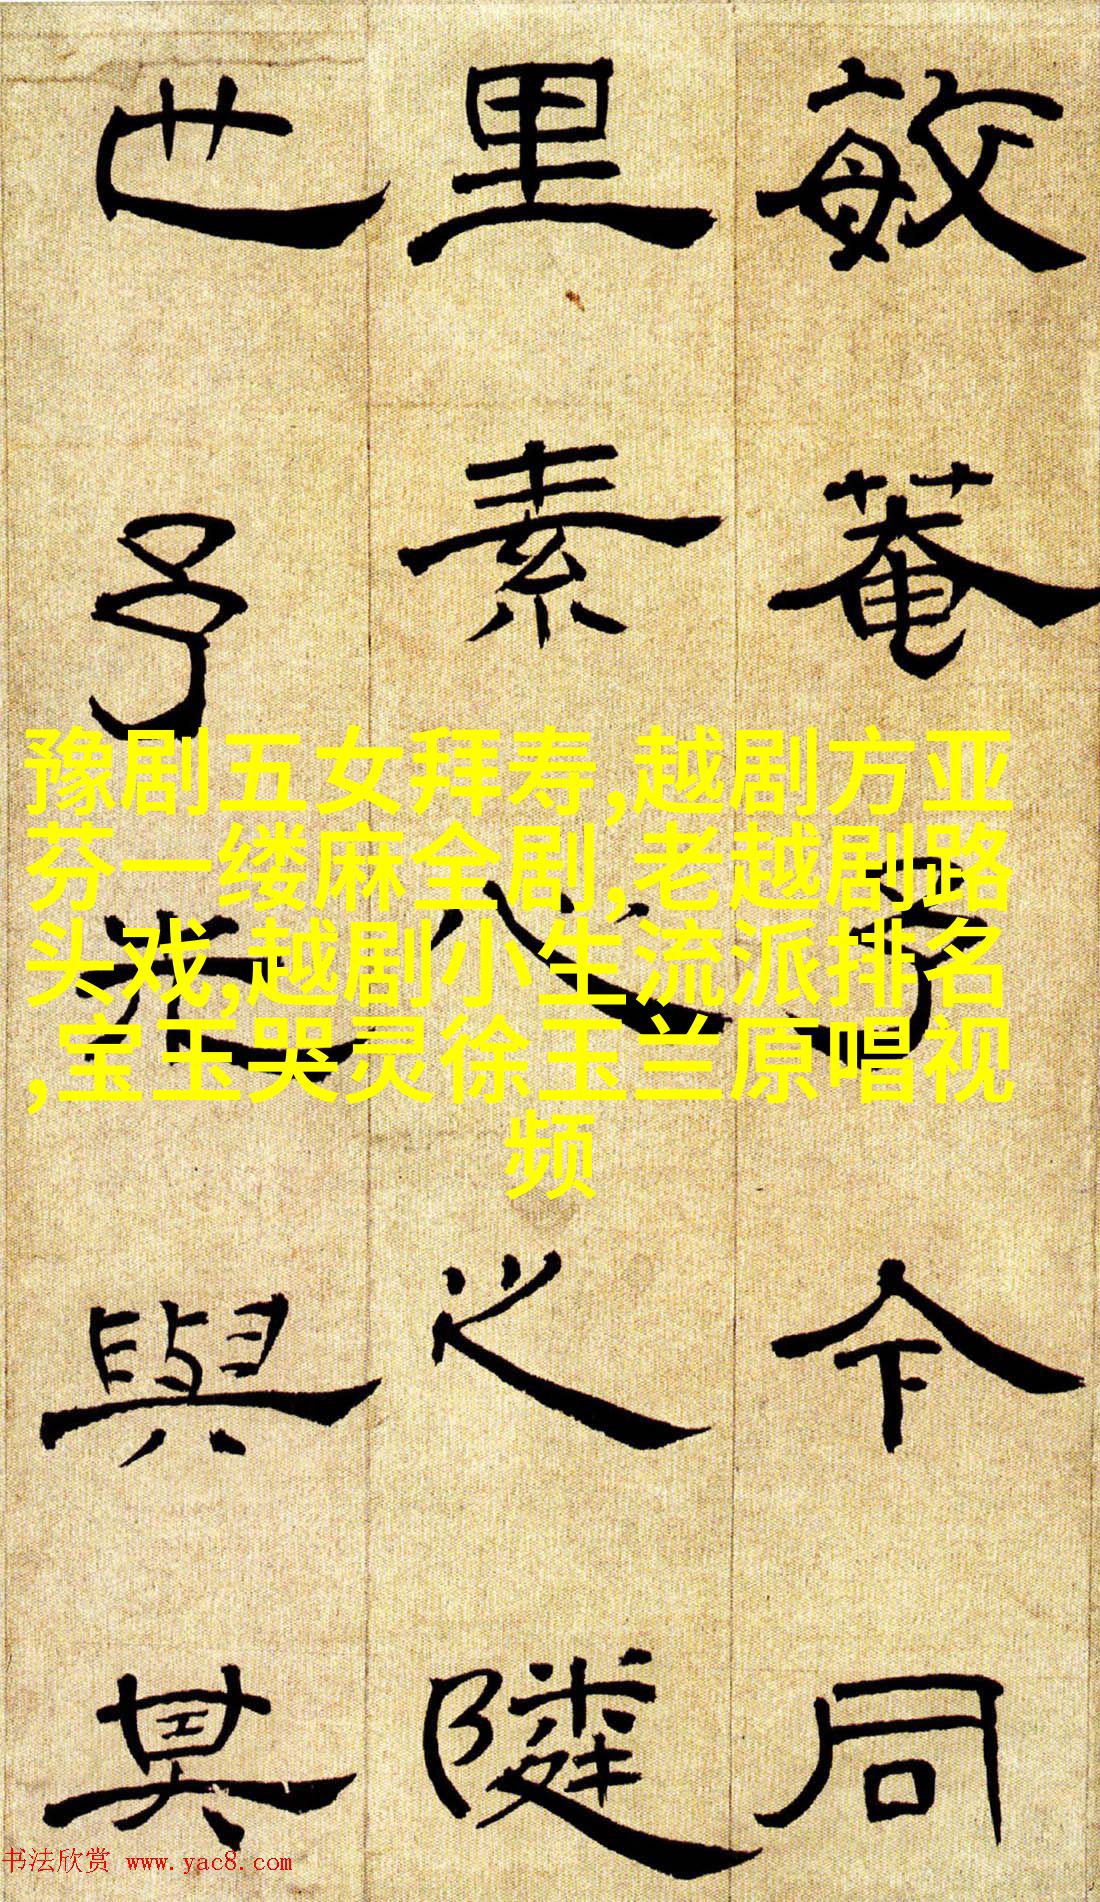 敏菴予今同
里素心之隣
也予先與其
豫剧五女拜寿,越剧方亚
芬一缕麻全剧,老越剧路
头戏,越剧小生流派排名
,宝玉哭灵徐玉兰原唱视
频
书法欣赏 www.yac8.com